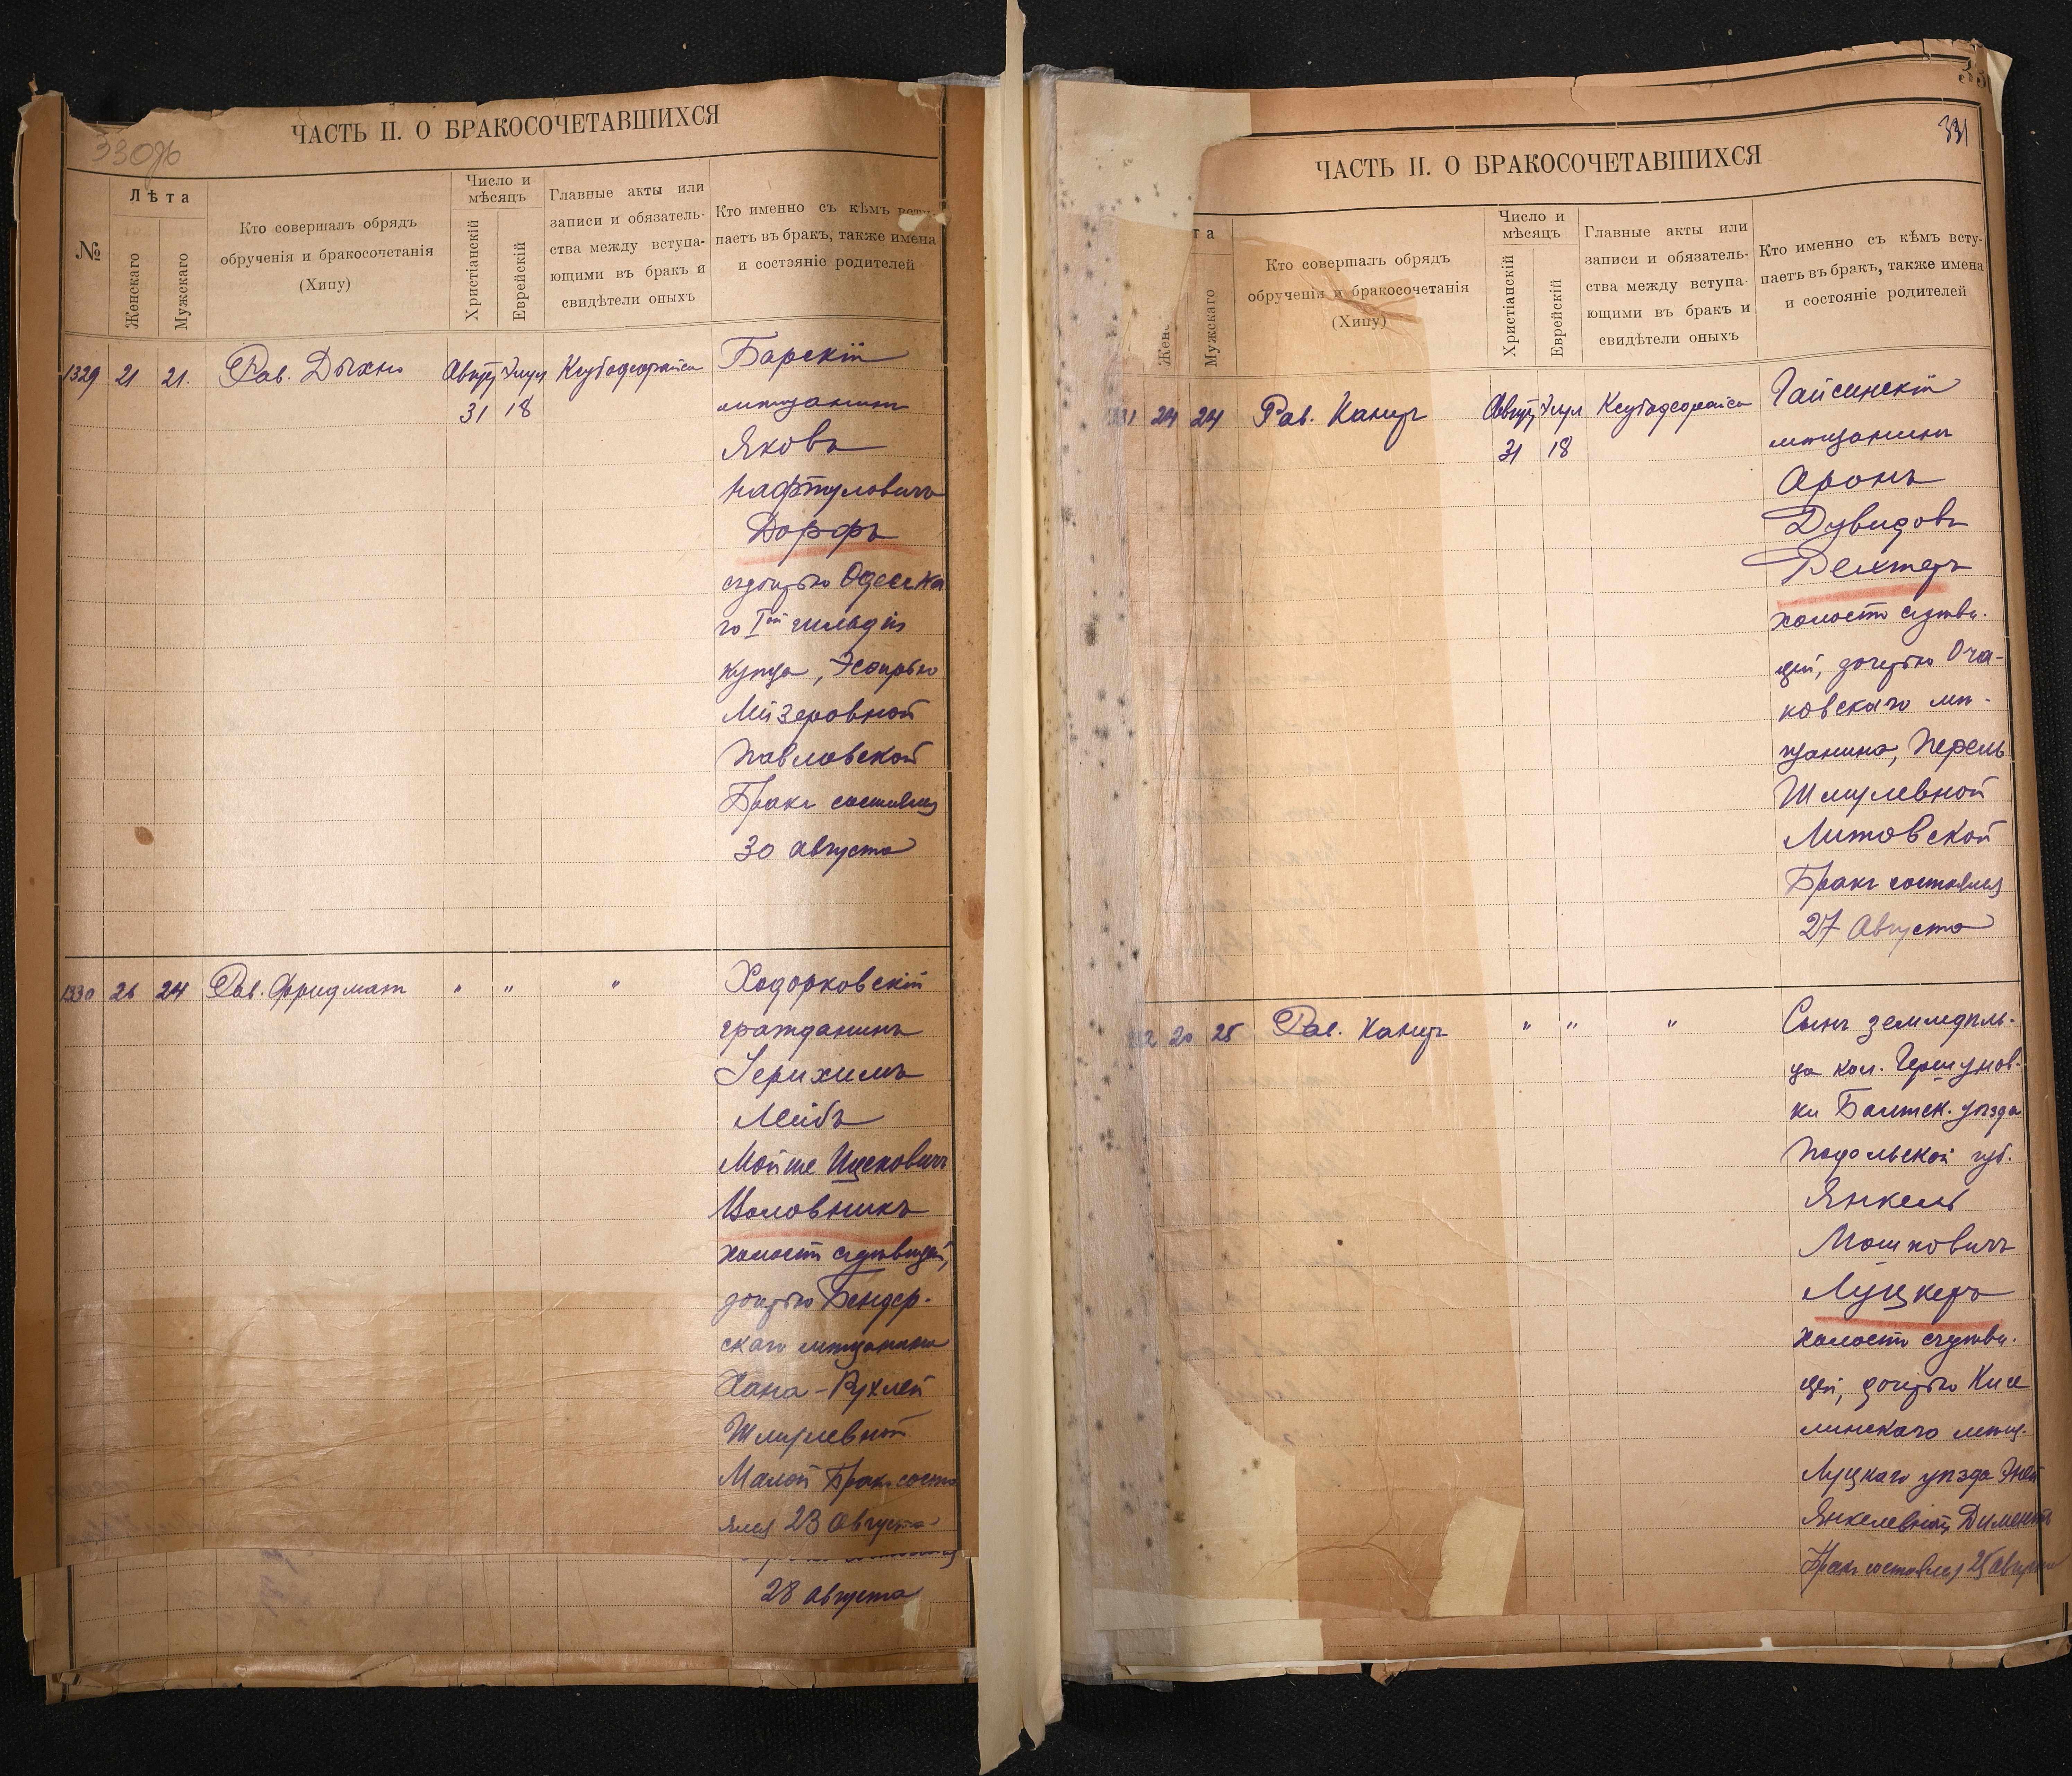 ЧАСТЬ II. О БРАКОСОЧЕТАВШИХСЯ
330об
№
Лѣта
Женскаго
Мужскаго
Кто совершалъ обрядъ
обрученія и бракосочетанія
(Хипу)
Число и
мѣсяцъ
Христіанскій
Еврейскій
Главные акты или
записи и обязатель-
ства между вступа-
ющими въ бракъ и
свидѣтели оныхъ
Кто именно съ кѣмъ всту-
паетъ въ бракъ, также имена
и состояніе родителей
1329 21 21. Рав. Дыхно
31 18
Барскій
мѣщанинъ
Яковъ
Нафтуловичъ
Дорфъ
съ дочерью Одесска
го Iой гильдіи
купца, Эсѳирью
Лейзеровной
Павловской
Бракъ состоялся
30 августа
1330 26 24 Рав. Фридманъ " " "
Ходорковскій
гражданинъ
Іерихимъ
Лейбъ
Мойше Ицковичъ
Воловникъ
холостъ съ дѣвицей,
дочерью Бендер-
скаго мѣщанина
Хана-Рухлей
Шмулевной
Малой Бракъ состо
ялся 23 Августа
28 августа
331
ЧАСТЬ II. О БРАКОСОЧЕТАВШИХСЯ
та
Жен
Мужскаго
Кто совершалъ обрядъ
обрученія и бракосочетанія
(Хипу)
Число и
мѣсяцъ
Христіанскій
Еврейскій
Главные акты или
записи и обязатель-
ства между вступа-
ющими въ бракъ и
свидѣтели оныхъ
Кто именно съ кѣмъ всту-
паетъ въ бракъ, также имена
и состояніе родителей
331 24 24 Рав. Канеръ
31 18
Гайсинскій
мѣщанинъ
Аронъ
Дувидовъ
Рехтеръ
холостъ съ дѣви-
цей, дочерью Оча-
ковскаго мѣ-
щанина, Перель
Шмулевной
Литовской
Бракъ состоялся
27 Августа
20 25 Рав. Канеръ " " "
Сынъ земледѣль-
ца кол. Гершунов-
ки Балтск. уѣзда
Подольской губ.
Янкель
Мошковичъ
Луцкеръ
холостъ съ дѣви-
цей, дочерью Кисе
линскаго мѣщ.
Луцкаго уѣзда
Янкелевной Диментъ
Бракъ состоялся 25 августа